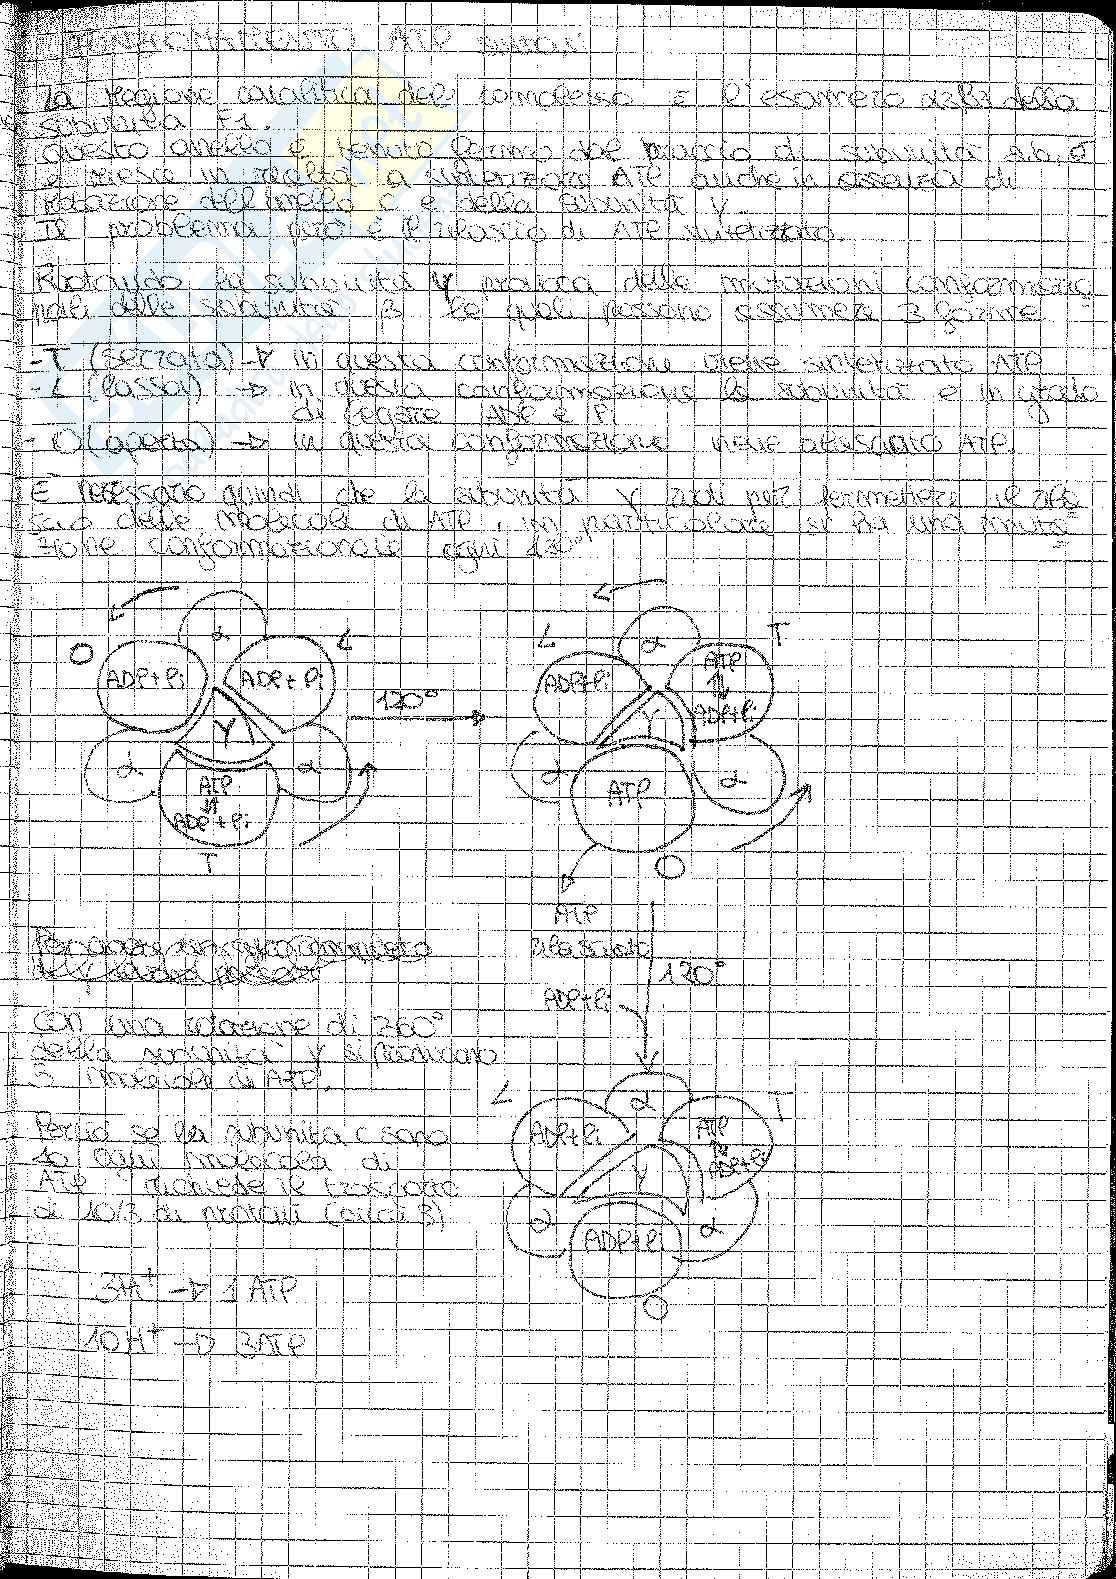 FUNZIONAMENTO ATP sintasi
La regione catalitica del complesso è l'esamero α3β3 della
subunità F1.
questo anello è tenuto fermo dal braccio di subunità a.b.σ
e riesce in realtà a sintetizzare ATP anche in assenza di
rotazione dell'anello c e della subunità γ.
Il problema però è il rilascio di ATP sintetizzato.
Ruotando la subunità γ provoca delle mutazioni conformazio
nali delle subunità β le quali possono assumere 3 forme
-T (serrata) → in questa conformazione viene sintetizzato ATP
-L (lassa) → in questa conformazione la subunità è in grado
di legare ADP e Pi
-O (aperta) → in questa conformazione viene rilasciato ATP.
È necessario quindi che la subunità γ ruoti per permettere il rila
scio delle molecole di ATP, in particolare si ha una muta
zione conformazionale ogni 120°
O
α
L
ADP+Pi
ADP+Pi
γ
α
α
ATP
ADP+Pi
T
120°
L
α
T
ADP+Pi
ATP
ADP+Pi
γ
α
α
ATP
O
ATP
rilasciato
120°
ADP+Pi
Con una rotazione di 360°
della subunità γ si producono
3 molecole di ATP.
Perciò se le subunità c sono
10 ogni molecola di
ATP richiede il trasporto
di 10/3 di protoni (circa 3)
3H⁺ → 1 ATP
10H⁺ → 3ATP
L
α
T
ADP+Pi
ATP
ADP+Pi
γ
α
α
ADP+Pi
O